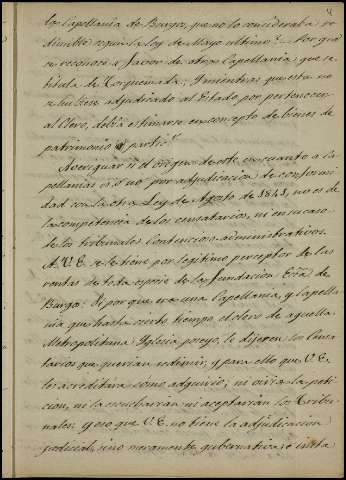 la Capellania de Burgos, que no lo consideraba re
dimible segun la ley de Mayo ultimo? Por qué
se reconoce a favor de otra Capellania que se
titula de Torquemada; y mientras que esta no
se hubiese adjudicado al Estado por pertenecer
al Clero, debia estimarse en concepto de bienes de
patrimonio partic.r
Averiguar si el origen de este en cuanto a la
pellanias es ó no por adjudicacion de conformi
dad con la otra Ley de Agosto de 1841, no es de
la competencia de los censatarios, ni en su caso
de los tribunales Contencioso-administrativos.
A V.E. se le tiene por legitimo perceptor de las
rentas de toda especie de la Fundacion
Burgos. Si, por que era una Capellania, y Capella
nia que hasta cierto tiempo el clero de aquella
Metropolitana Iglesia poseyo, le dijesen los Censa
tarios que querian redimir, y para ello que V.E.
les acreditara como adquirió; ni oiria la peti
cion, ni la escucharian ni aceptarian los Tribu
nales; y eso que V.E. no tiene la adjudicacion
judicial, sino meramente gubernativa; é insta